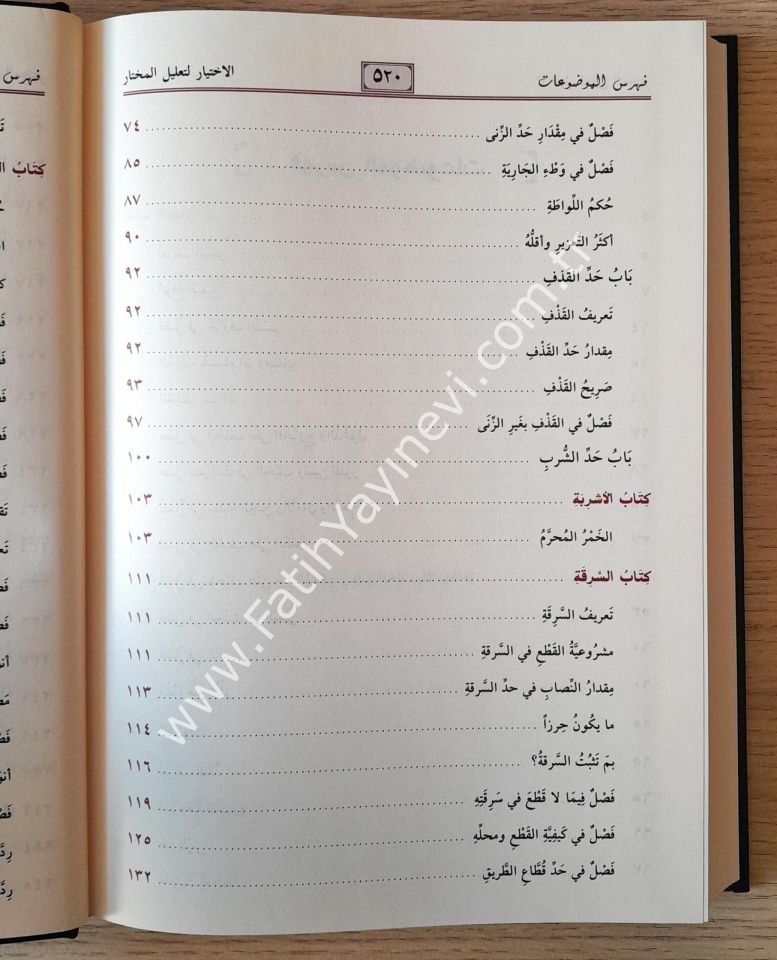 فهرس الموضوعات ٥٢٠ الاختيار لتعليل المختار
فَصْلٌ في مِقْدَارِ حَدِّ الزِّنى ٧٤
فَصْلٌ في وَطْءِ الجَارِيَةِ ٨٥
حُكمُ اللِّواطَةِ ٨٧
أكثَرُ التَعزيرِ وأقلُّهُ ٩٠
بَابُ حَدِّ القَذفِ ٩٢
تَعريفُ القَذْفِ ٩٢
مِقدارُ حَدِّ القَذْفِ ٩٢
صَرِيحُ القَذْفِ ٩٣
فَصْلٌ في القَذْفِ بغَيرِ الزِّنَى ٩٧
بَابُ حَدِّ الشُّربِ ١٠٠
كِتَابُ الأشرِبَةِ ١٠٣
الخَمْرُ المُحرَّمُ ١٠٣
كِتَابُ السَّرِقَةِ ١١١
تَعريفُ السَّرِقَةِ ١١١
مشرُوعيَّةُ القَطْعِ في السَّرقةِ ١١١
مِقدارُ النِّصابِ في حدِّ السَّرقةِ ١١٣
ما يكُونُ حِرزاً ١١٤
بمَ تَثبُتُ السَّرقةُ؟ ١١٦
فَصْلٌ فِيمَا لا قَطْعَ في سَرِقَتِهِ ١١٩
فَصْلٌ في كَيفِيَّةِ القَطْعِ ومحلِّهِ ١٢٥
فَصْلٌ في حَدِّ قُطَّاعِ الطَّريقِ ١٣٢
فهرس
كِتَابُ
www.FatihYayinevi.com.tr